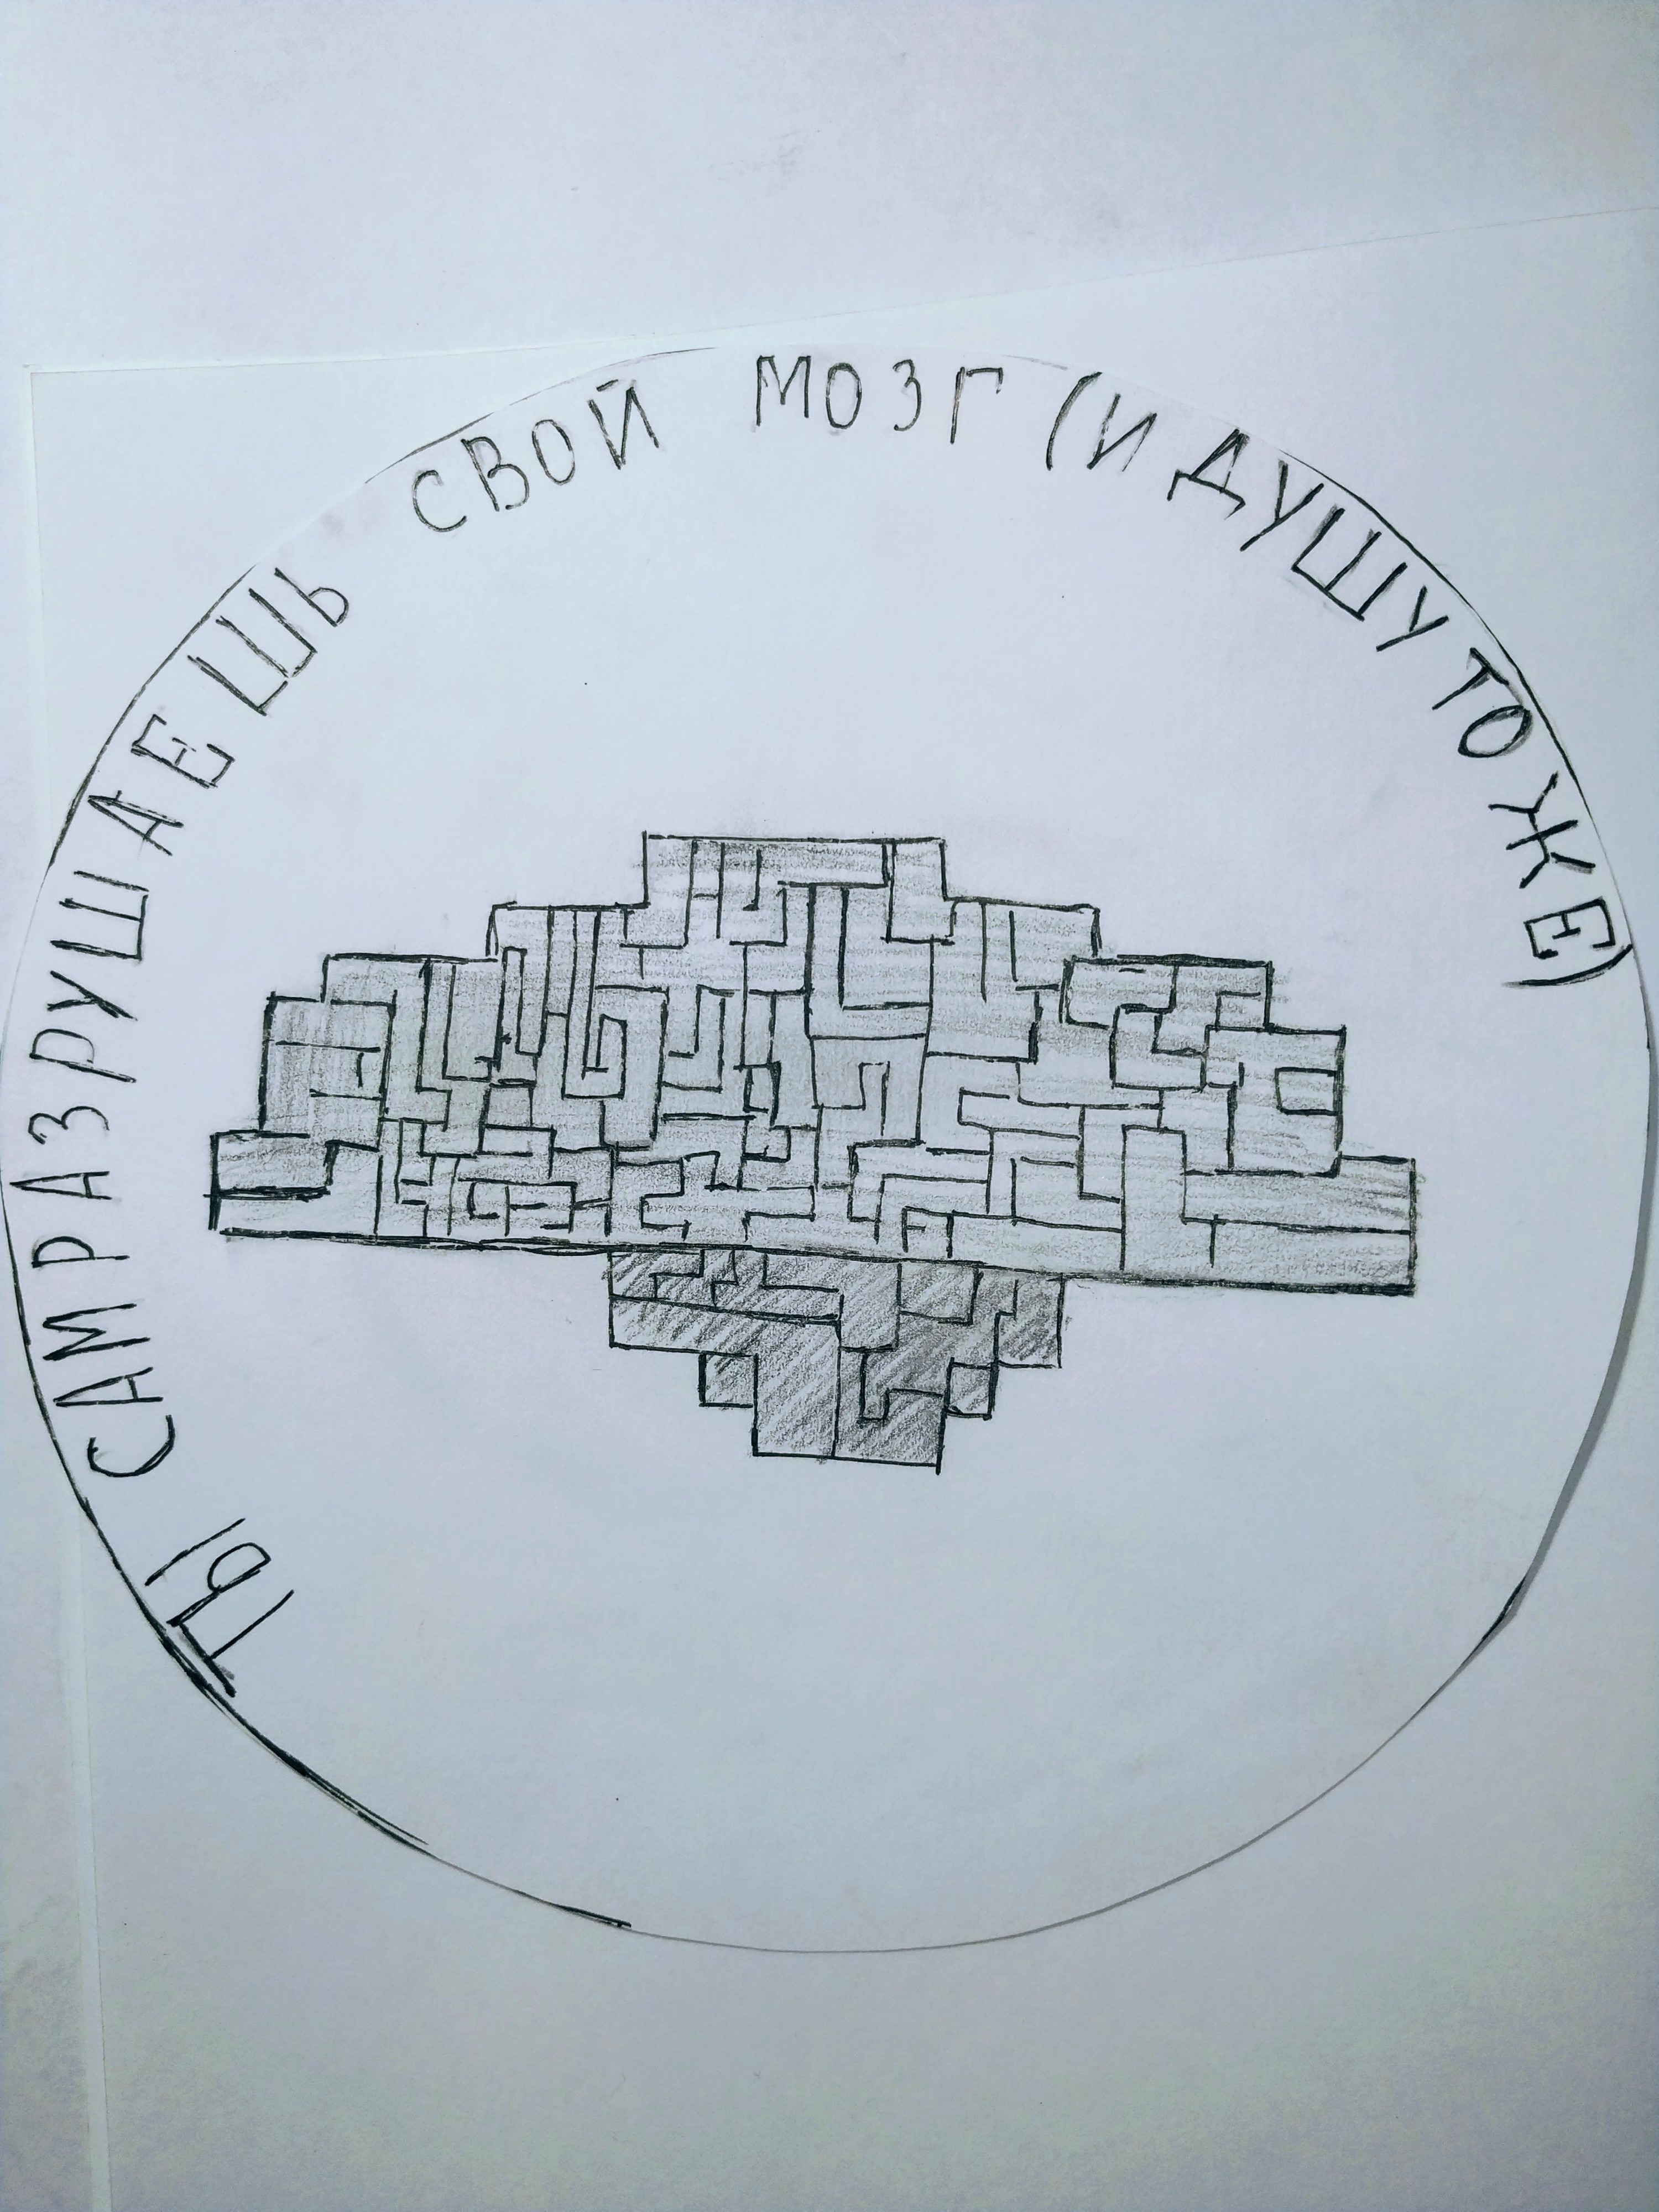 ТЫ САМ РАЗРУШАЕШЬ СВОЙ МОЗГ (И ДУШУ ТОЖЕ)